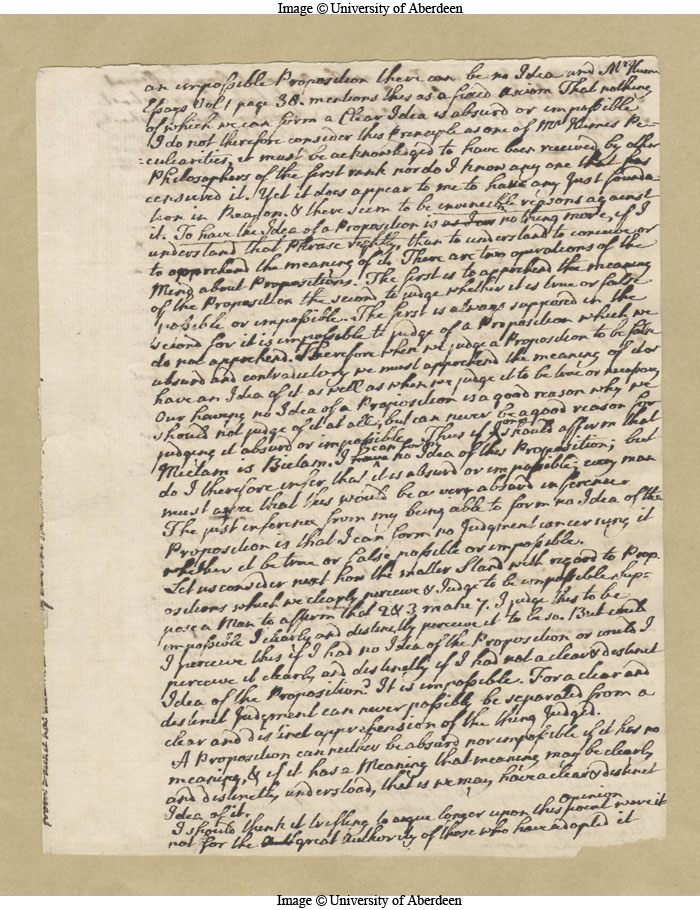 Image © University of Aberdeen
an impossible Proposition there can be no Idea and Mr Hume
Essays Vol 1 page 38. mentions this as a fixed axiom That nothing
of which we can form a Clear Idea is absurd or impossible
I do not therefore consider this Principle as one of Mr Humes Pe=
=culiarities, it must be acknowledged to have been received by other
Philosophers of the first rank nor do I know any one that has
censured it. Yet it does appear to me to have any Just founda
tion in Reason. & there seem to be invincible reasons against
it. To have the Idea of a Proposition is nothing more, if I
understand that Phrase rightly, than to understand to conceive or
to apprehend the meaning of it. There are two operations of the
Mind about Propositions. The first is to apprehend the meaning
of the Proposition the second to judge whether it is true or false
possible or impossible. The first is always supposed in the
second for it is impossible to judge of a Proposition which we
do not apprehend. Therefore when we judge a Proposition to be false
absurd and contradictory we must apprehend the meaning of it or
have an Idea of it as well as when we judge it to be true or necessary
Our having no Idea of a Proposition is a good reason why we
should not judge of it at all, but can never be a good reason for
judging it absurd or impossible. Thus if should affirm that
Miclam is Biclam. I can form no Idea of this Proposition; but
do I therefore infer that it is absurd or impossible; every man
must agree that this would be a very absurd inference
The just inference from my being able to form no Idea of the
Proposition is that I can form no Judgment concerning it
whether it be true or false possible or impossible.
Let us consider next how the matter Stand with regard to Prop
ositions which we clearly perceive & Judge to be impossible sup=
pose a Man to affirm that 2 & 3 make 7. I judge this to be
impossible I clearly and distinctly perceive it to be so. But could
I perceive this if I had no Idea of the Proposition or could I
perceive it clearly and distinctly if I had not a clear & distinct
Idea of the Proposition? It is impossible. For a clear and
distinct Judgment can never possibly be separated from a
clear and distinct apprehension of the thing Judged.
A Proposition can neither be absurd nor impossible if it has no
meaning, & if it has a Meaning that meaning may be clearly
and distinctly understood, that is we may have a clear & distinct
Idea of it.
I should think it trifling to argue longer upon this opinion were it
not for the great Authority of those who have adopted it
Image © University of Aberdeen